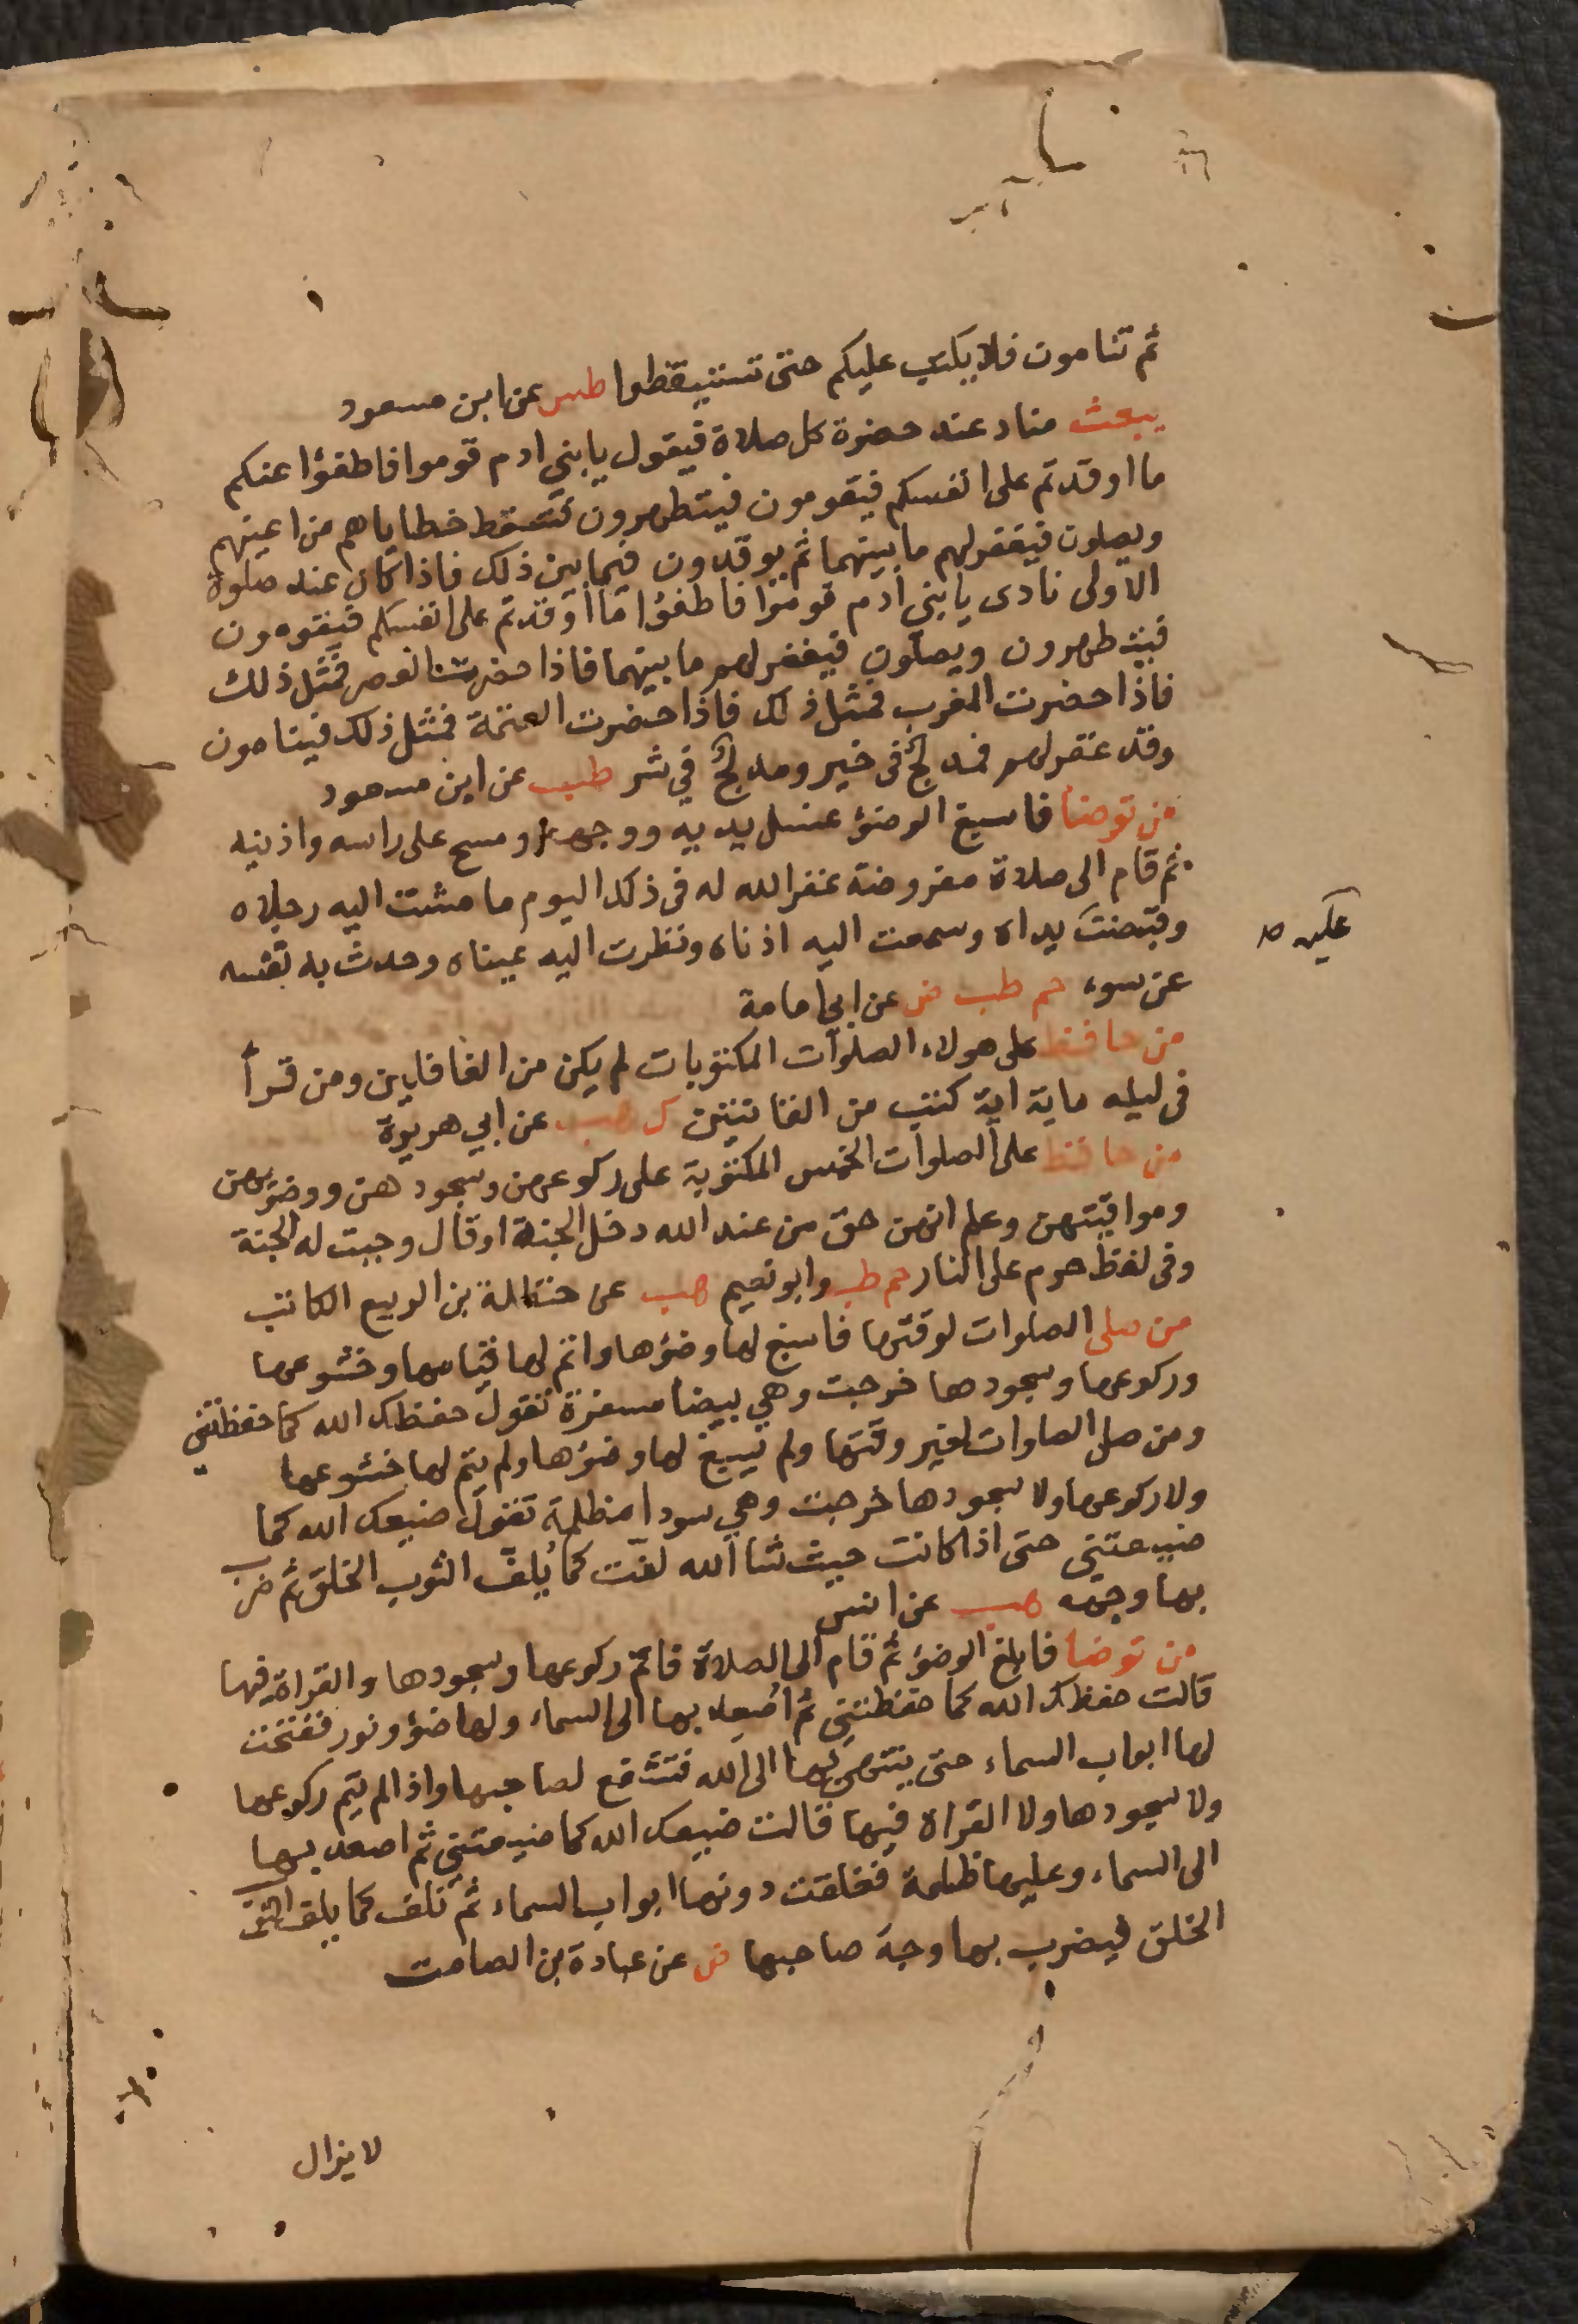 ثم تنامون فلا يكتب عليكم حتى تستيقظوا طس عن ابن مسعود
يبعث مناد عند حضرة كل صلاة فيقول يا بني ادم قوموا فاطفؤا عنكم
ما اوقدتم على انفسكم فيقومون فيتطهرون فتسقط خطاياهم من اعينهم
ويصلون فيغفر لهم ما بينهما ثم يوقدون فيما بين ذلك فاذا كان عند صلوة
الاولى نادى يا بني ادم قوموا فاطفؤا ما اوقدتم على انفسكم فيقومون
فيتطهرون ويصلون فيغفر لهم ما بينهما فاذا حضرت العصر فمثل ذلك
فاذا حضرت المغرب فمثل ذلك فاذا حضرت العتمة فمثل ذلك فينامون
وقد غفر لهم فمدلج في خير ومدلج في شر طب عن ابن مسعود
من توضا فاسبغ الوضؤ غسل يديه ووجهه ومسح على راسه واذنيه
ثم قام الى صلاة مفروضة غفر الله له في ذلك اليوم ما مشت اليه رجلاه
وقبضت يداه وسمعت اليه اذناه ونظرت اليه عيناه وحدث به نفسه
عليه ص
عن سوء حم طب ض عن ابي امامة
من حافظ على هولاء الصلوآت المكتوبات لم يكن من الغافلين ومن قرأ
في ليله ماية اية كتب من القانتين ك هب عن ابي هريرة
من حافظ على الصلوات الخمس المكتوبة على ركوعهن وسجودهن ووضوئهن
ومواقيتهن وعلم انهن حق من عند الله دخل الجنة او قال وجبت له الجنة
وفى لفظ حرم على النار حم طب وابو نعيم هب عن حنظلة بن الربيع الكاتب
من صلى الصلوات لوقتها فاسبغ لها وضؤها واتم لها قيامها وخشوعها
وركوعها وسجودها خرجت وهي بيضا مسفرة تقول حفظك الله كما حفظتني
ومن صلى الصلوات لغير وقتها ولم يسبغ لها وضؤها ولم يتم لها خشوعها
ولا ركوعها ولا سجودها خرجت وهي سودا مظلمة تقول ضيعك الله كما
ضيعتني حتى اذا كانت حيث شا الله لفت كما يلف الثوب الخلق ثم ضرب
بها وجهه هب عن انس
من توضا فابلغ الوضؤ ثم قام الى الصلاة فاتم ركوعها وسجودها والقراة فيها
قالت حفظك الله كما حفظتني ثم اصعد بها الى السماء ولها ضؤ ونور ففتحت
لها ابواب السماء حتى ينتهي بها الى الله فتشفع لصاحبها واذا لم يتم ركوعها
ولا سجودها ولا القراه فيها قالت ضيعك الله كما ضيعتني ثم اصعد بها
الى السماء وعليها ظلمة فغلقت دونها ابواب السماء ثم تلف كما يلف الثوب
الخلق فيضرب بها وجه صاحبها ض عن عبادة بن الصامت
لا يزال